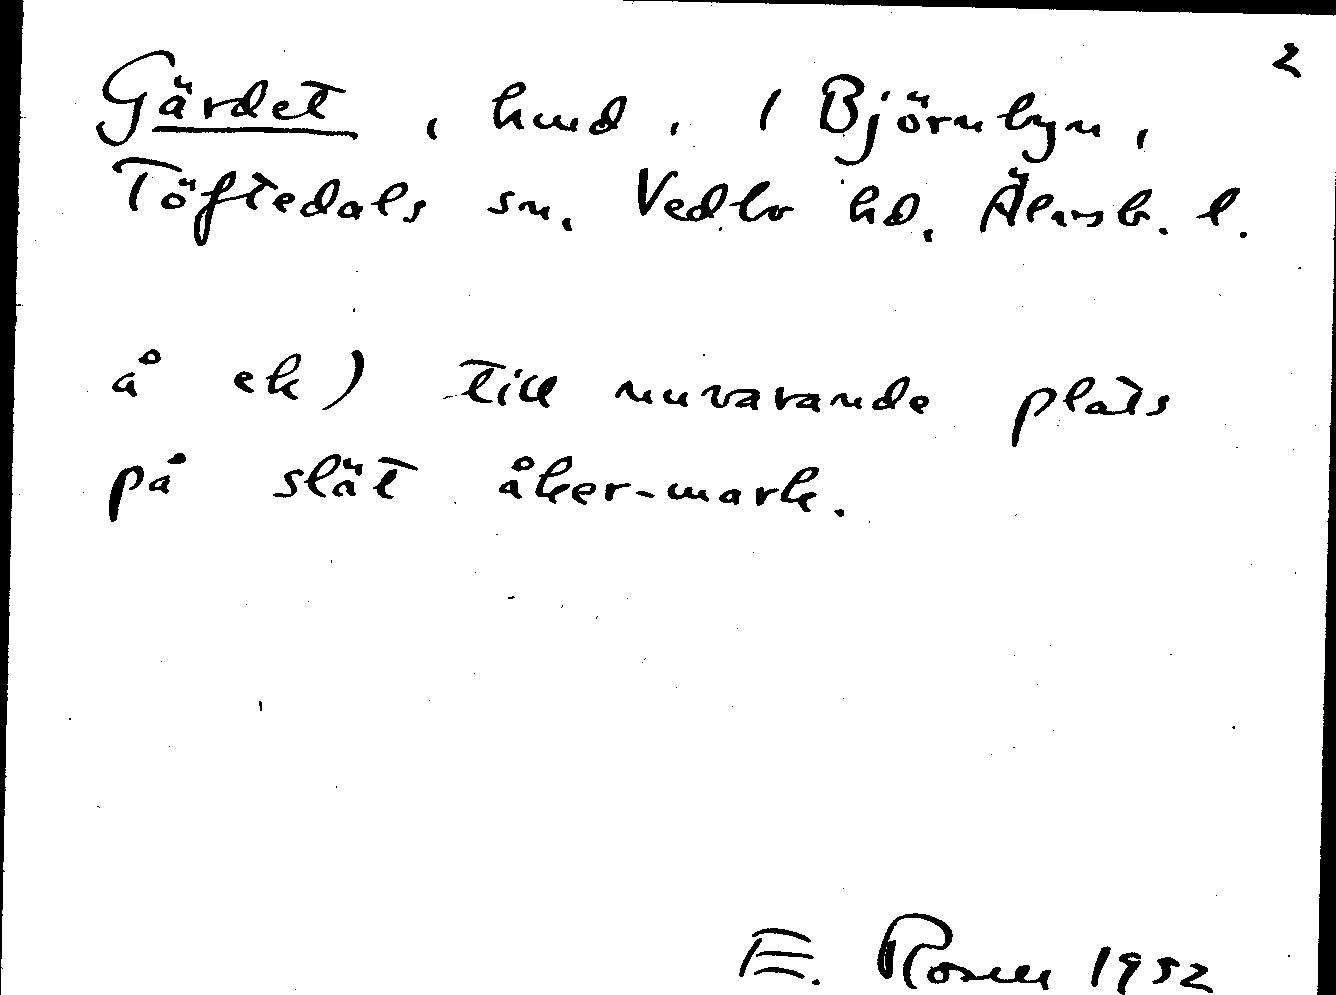 2
Gärdet, hmd, 1 Björnbyn,
Töftedals sn, Vedbo hd, Älvsb. l.
å ek) till nuvarande plats
på slät åker-mark.
E. Rosell 1932